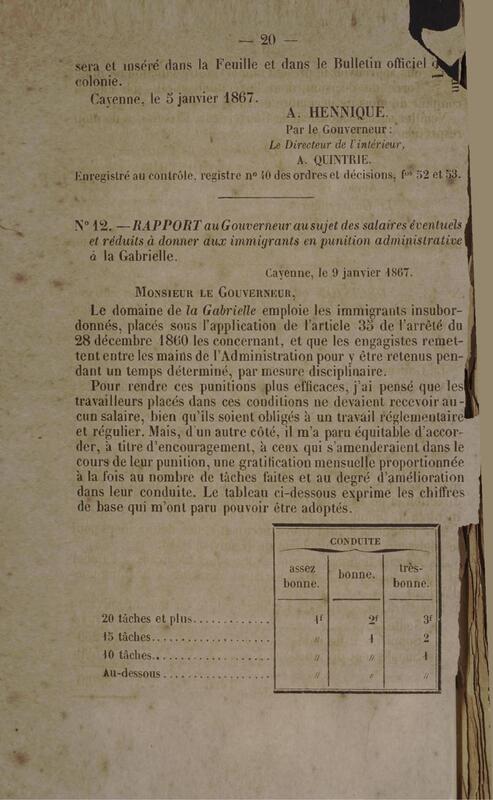 — 20 —
sera et inséré dans la Feuille et dans le Bulletin officiel
colonie.
Cayenne, le 5 janvier 1867.
A. HENNIQUE.
Par le Gouverneur:
Le Directeur de l'intérieur,
A. QUINTRIE.
Enregistré au contrôle, registre n° 40 des ordres et décisions, fos 52 et 53.
N° 12. — RAPPORT au Gouverneur au sujet des salaires éventuels
et réduits à donner aux immigrants en punition administrative
à la Gabrielle.
Cayenne, le 9 janvier 1867.
MONSIEUR LE GOUVERNEUR,
Le domaine de la Gabrielle emploie les immigrants insubor-
donnés, placés sous l'application de l'article 35 de l'arrêté du
28 décembre 1860 les concernant, et que les engagistes remet-
tent entre les mains de l'Administration pour y être retenus pen-
dant un temps déterminé, par mesure disciplinaire.
Pour rendre ces punitions plus efficaces, j'ai pensé que les
travailleurs placés dans ces conditions ne devaient recevoir au-
cun salaire, bien qu'ils soient obligés à un travail réglementaire
et régulier. Mais, d'un autre côté, il m'a paru équitable d'accor-
der, à titre d'encouragement, à ceux qui s'amenderaient dans le
cours de leur punition, une gratification mensuelle proportionnée
à la fois au nombre de tâches faites et au degré d'amélioration
dans leur conduite. Le tableau ci-dessous exprime les chiffres
de base qui m'ont paru pouvoir être adoptés.
CONDUITE
assez bonne. bonne. très-bonne.
20 tâches et plus............. 1f 2f 3f
15 tâches..................... " 1 2
10 tâches..................... " " 1
Au-dessous.................... " " "